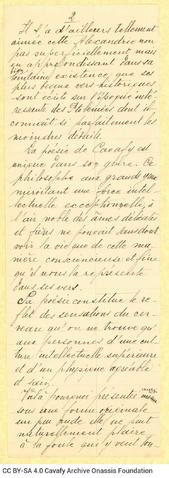 2
Il l'a d'ailleurs tellement
aimée cette Alexandrie non
pas superficiellement, mais
en approfondissant dans sa
lointaine existence, que ses
plus beaux vers historiques
sont ceux sur l'époque inté-
ressant des Ptolémées dont il
connaît si parfaitement les
moindres détails.
La poésie de Cavafy est
unique dans son genre. Ce
philosophe aux grands yeux
miroitant une force intel-
lectuelle exceptionnelle, à
l'air noble des âmes délicates
et fières ne pouvait sans doute
voir la vie que de cette ma-
nière consciencieuse et fine
qu'il nous la représente
dans ses vers.
Sa poésie constitue le re-
flet des sensations du cer-
veau qu'on ne trouve qu'
aux personnes d'une cul-
ture intellectuelle supérieure
et d'un physique agréable
et sain.
Voilà pourquoi présentée
sous une forme originale
un peu rude elle ne peut
naturellement plaire
à la foule qui y veut
CC BY-SA 4.0 Cavafy Archive Onassis Foundation